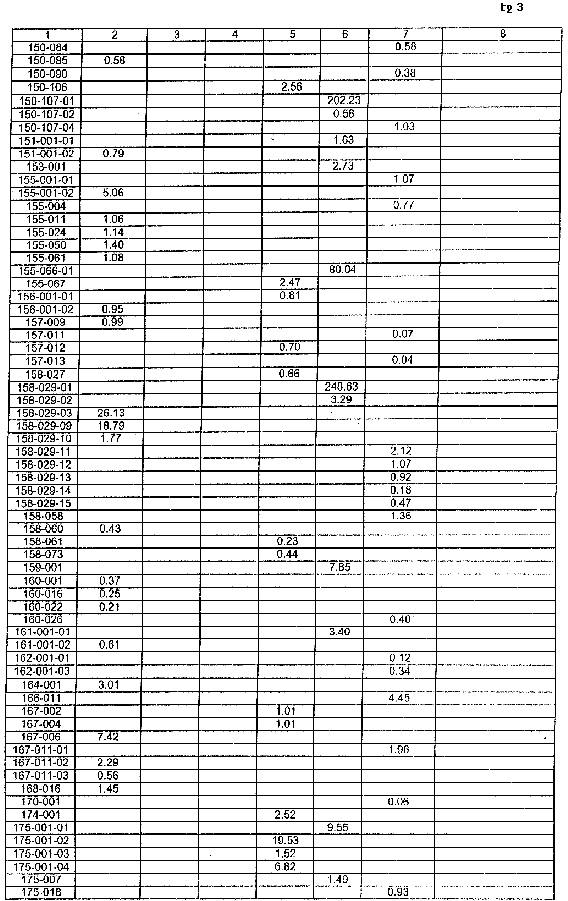 tp 3
1 2 3 4 5 6 7 8
150-084 0.58
150-085 0.56
150-090 0.38
150-106 2.56
150-107-01 202.23
150-107-02 0.56
150-107-04 1.03
151-001-01 1.63
151-001-02 0.79
153-001 2.73
155-001-01 1.07
155-001-02 5.06
155-004 0.77
155-011 1.06
155-024 1.14
155-050 1.40
155-061 1.08
155-066-01 80.04
155-067 2.47
156-001-01 0.81
156-001-02 0.95
157-009 0.99
157-011 0.07
157-012 0.70
157-013 0.04
158-027 0.66
158-029-01 240.63
158-029-02 3.29
158-029-03 26.13
158-029-09 18.79
158-029-10 1.77
158-029-11 2.12
158-029-12 1.07
158-029-13 0.92
158-029-14 0.18
158-029-15 0.47
158-058 1.36
158-060 0.43
158-061 0.23
158-073 0.44
159-001 7.85
160-001 0.37
160-016 0.25
160-022 0.21
160-026 0.40
161-001-01 3.40
161-001-02 0.61
162-001-01 0.12
162-001-03 0.34
164-001 3.01
166-011 4.45
167-002 1.01
167-004 1.01
167-006 7.42
167-011-01 1.96
167-011-02 2.29
167-011-03 0.56
168-016 1.45
170-001 0.06
174-001 2.52
175-001-01 9.55
175-001-02 19.53
175-001-03 1.52
175-001-04 6.62
175-007 1.49
175-018 0.93